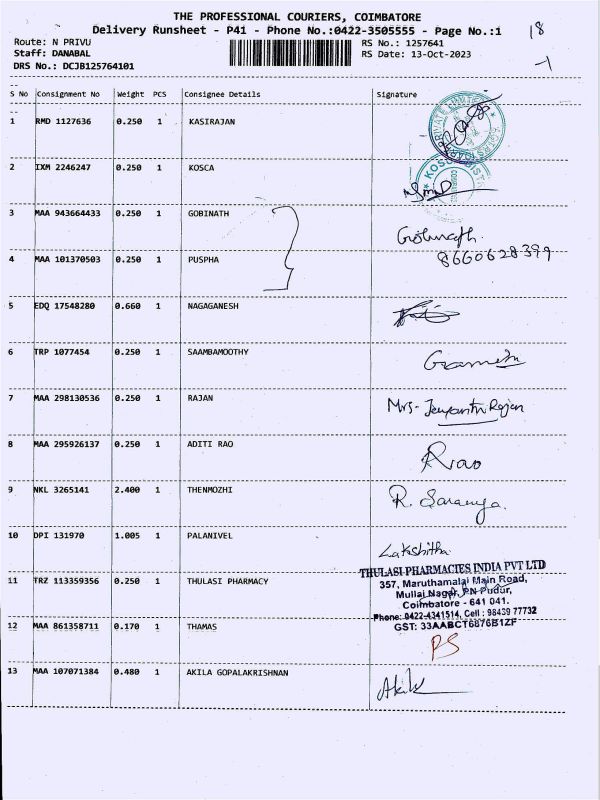 THE PROFESSIONAL COURIERS, COIMBATORE
Delivery Runsheet - P41 - Phone No.:0422-3505555 - Page No.:1
18
Route: N PRIVU RS No.: 1257641
Staff: DANABAL RS Date: 13-Oct-2023
DRS No.: DCJB125764101
-1
S No Consignment No Weight PCS Consignee Details Signature
1 RMD 1127636 0.250 1 KASIRAJAN
PRIVATE LIMITED
2 IXM 2246247 0.250 1 KOSCA
3 MAA 943664433 0.250 1 GOBINATH
Gobinath
8660628399
4 MAA 101370503 0.250 1 PUSPHA
5 EDQ 17548280 0.660 1 NAGAGANESH
6 TRP 1077454 0.250 1 SAAMBAMOOTHY
7 MAA 298130536 0.250 1 RAJAN
Mrs- Jeyanthi Rajan
8 MAA 295926137 0.250 1 ADITI RAO
Rrao
9 NKL 3265141 2.400 1 THENMOZHI
R. Saranya.
10 DPI 131970 1.005 1 PALANIVEL
Lakshitha
THULASI PHARMACIES INDIA PVT LTD
11 TRZ 113359356 0.250 1 THULASI PHARMACY
357, Maruthamalai Main Road,
Mullai Nagar, PN Pudur,
Coimbatore - 641 041.
Phone: 0422-4341514, Cell : 98439 77732
GST: 33AABCT6876B1ZF
12 MAA 861358711 0.170 1 THAMAS
PS
13 MAA 107071384 0.480 1 AKILA GOPALAKRISHNAN
Akila